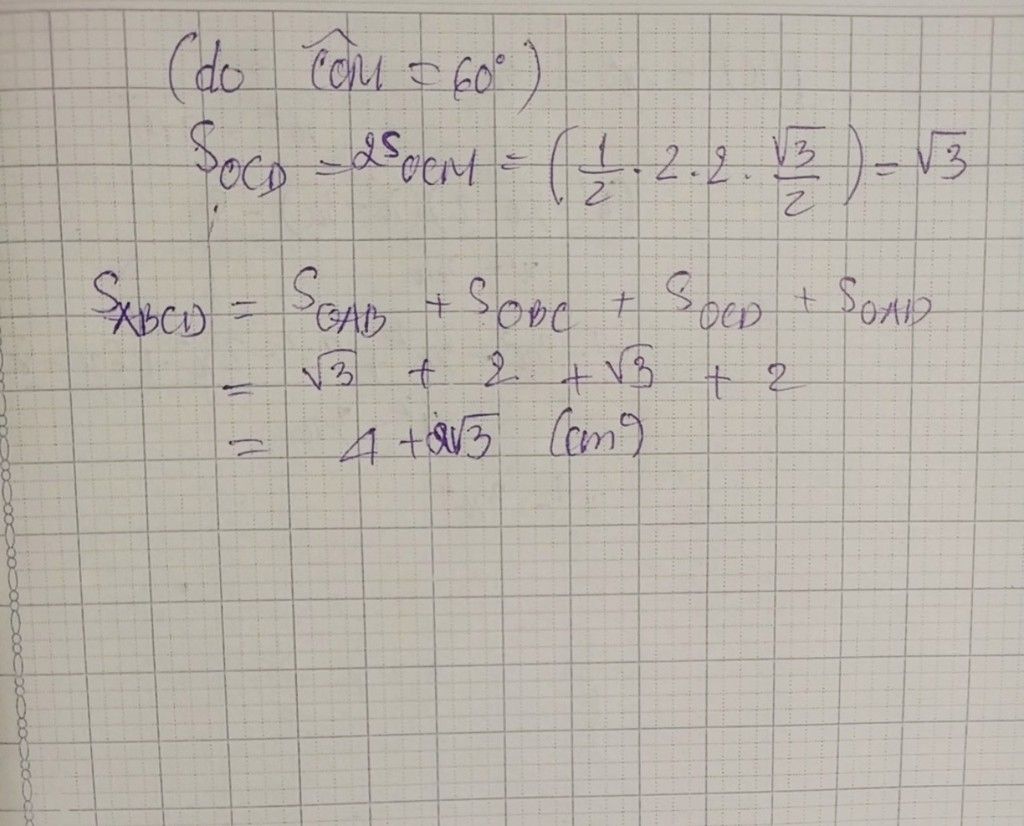 (do \widehat{COM} = 60°)
S_{OCD} = 2S_{OCM} = (\frac{1}{2} . 2 . 2 . \frac{\sqrt{3}}{2}) = \sqrt{3}
S_{ABCD} = S_{OAB} + S_{OBC} + S_{OCD} + S_{OAD}
= \sqrt{3} + 2 + \sqrt{3} + 2
= 4 + 2\sqrt{3} (cm²)